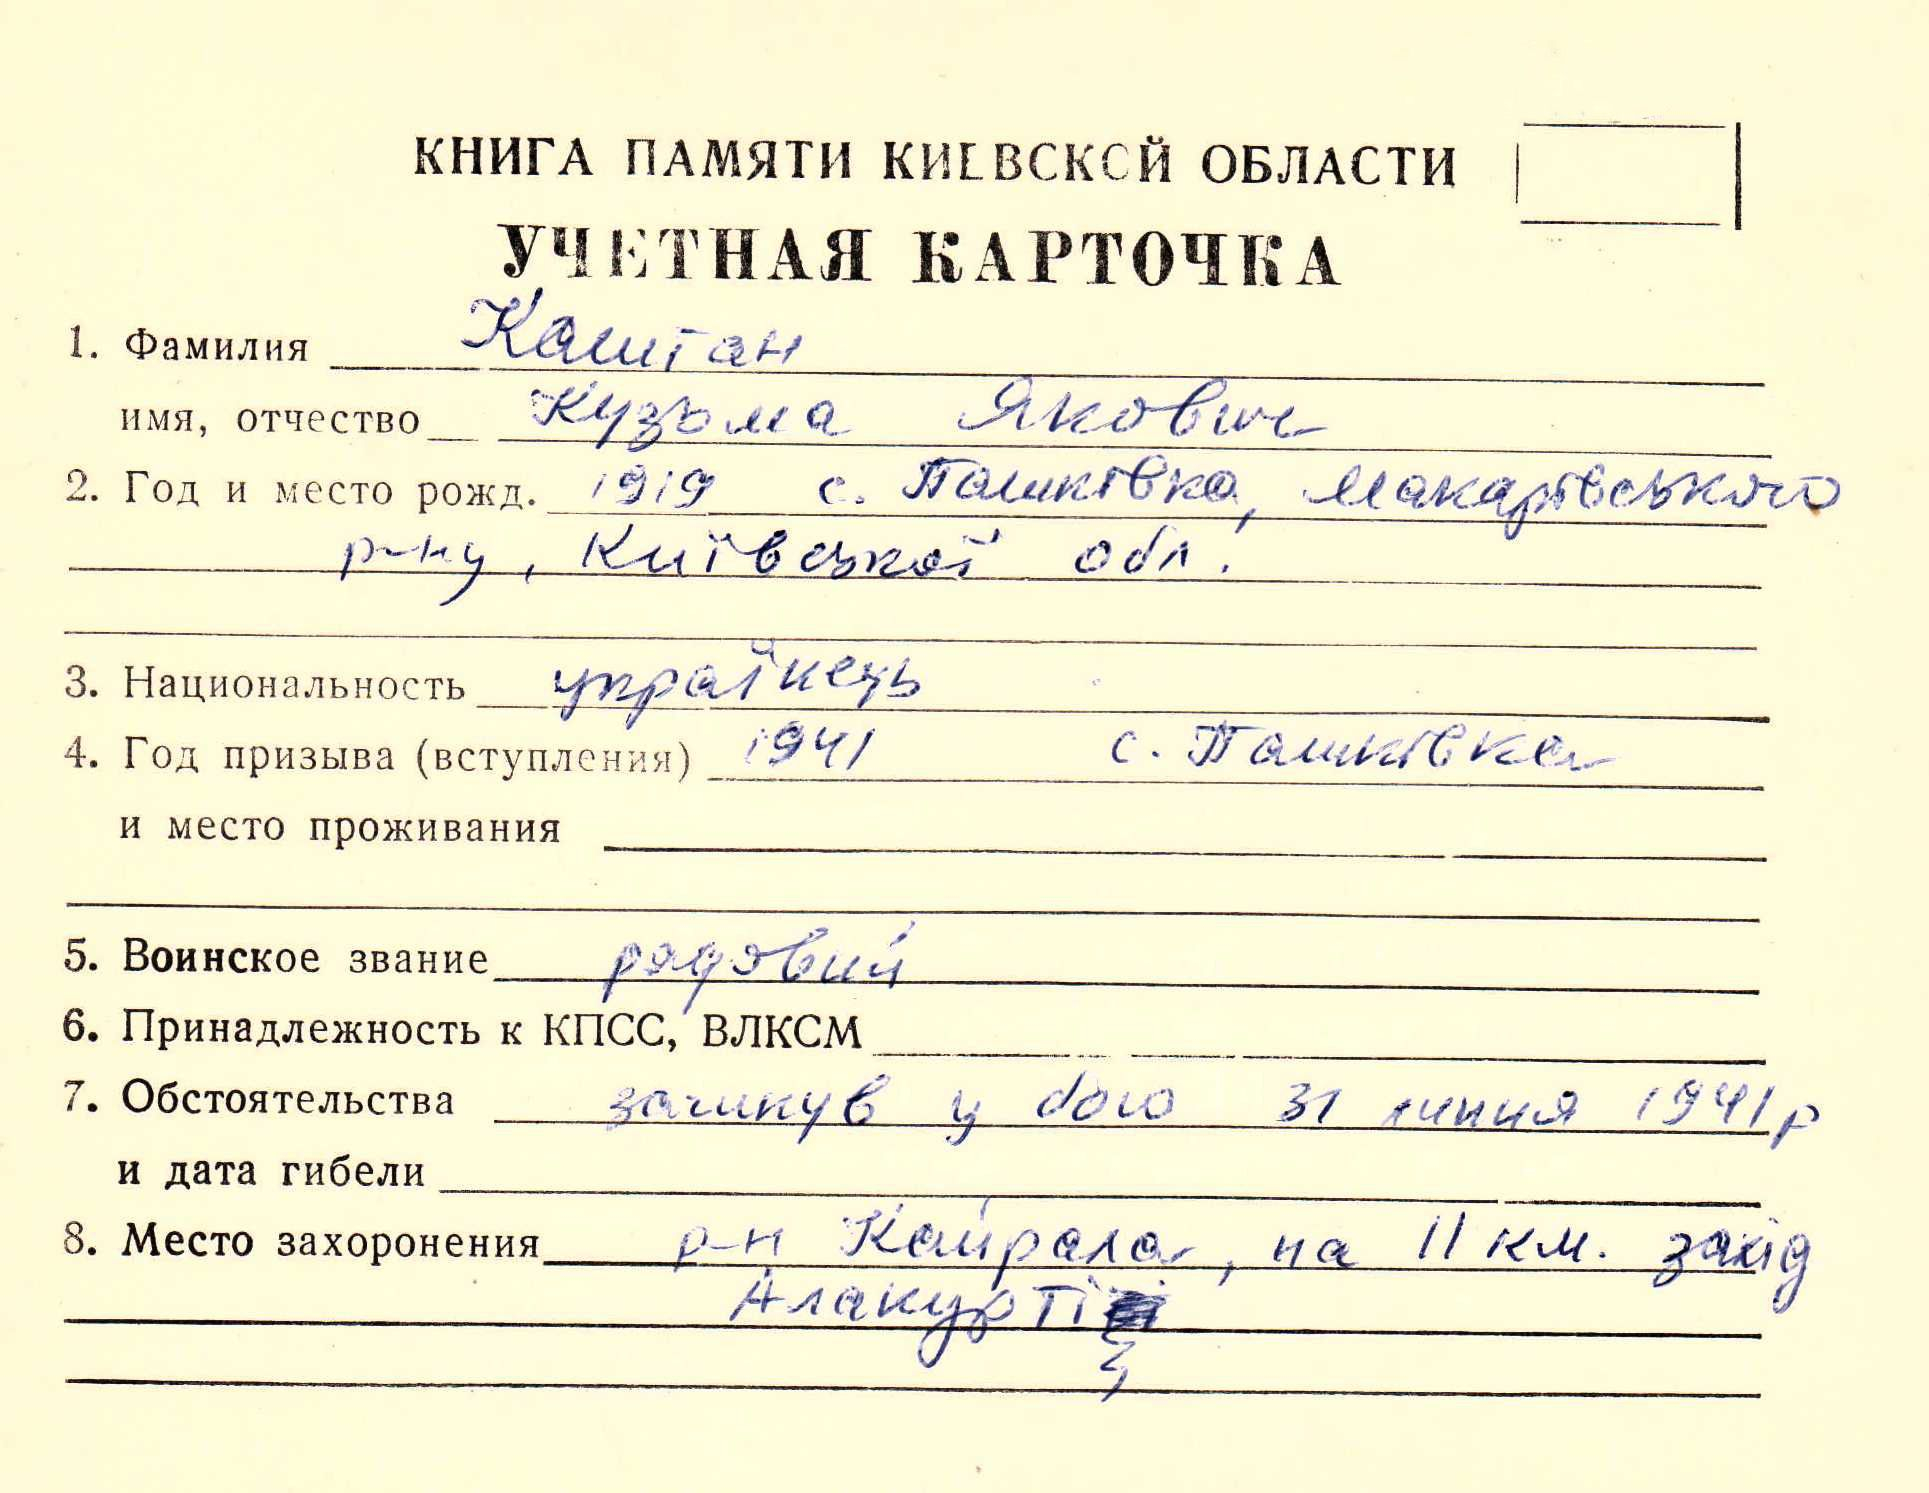 КНИГА ПАМЯТИ КИЕВСКОЙ ОБЛАСТИ
УЧЕТНАЯ КАРТОЧКА
1. Фамилия Каштан
имя, отчество Кузьма Якович
2. Год и место рожд. 1919 с. Пашківка, Макарівського
р-ну, Київської обл.
3. Национальность українець
4. Год призыва (вступления) 1941 с. Пашківка
и место проживания
5. Воинское звание рядовий
6. Принадлежность к КПСС, ВЛКСМ
7. Обстоятельства загинув у бою 31 липня 1941 р
и дата гибели
8. Место захоронения р-н Кайрала, на 11 км. захід
Алакурті